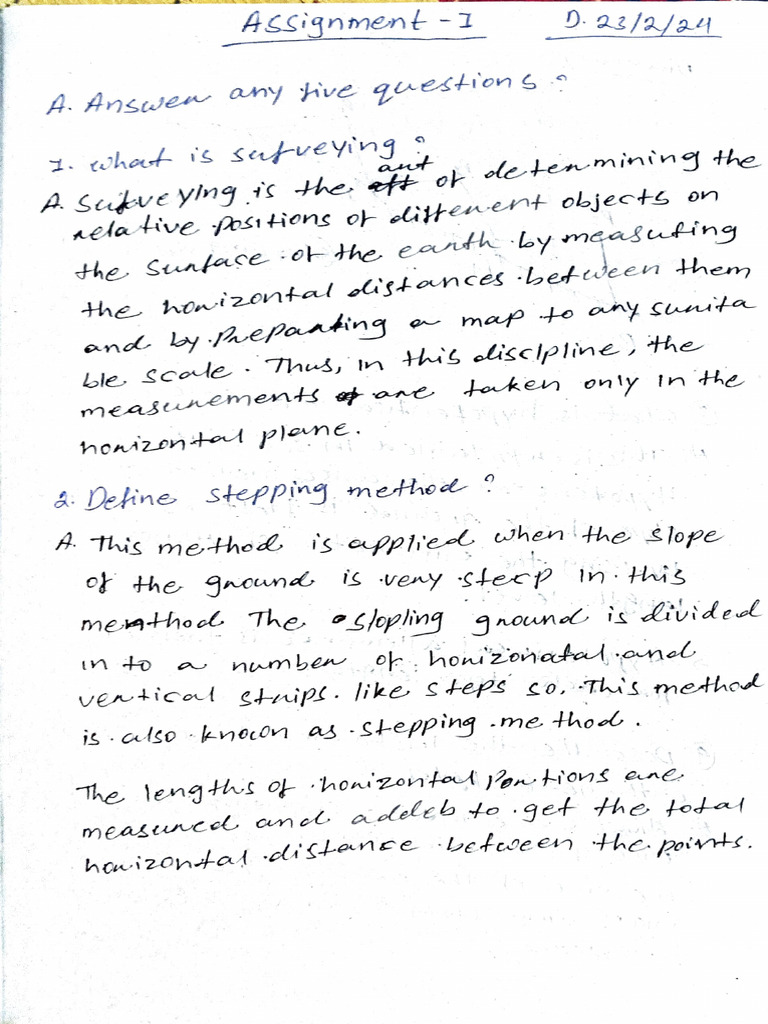 Assignment - I D. 23/2/24
A. Answer any five questions?
1. What is surveying?
A. Surveying is the art of determining the
relative positions of different objects on
the surface of the earth by measuring
the horizontal distances between them
and by preparing a map to any suita
ble scale. Thus, in this discipline, the
measurements are taken only in the
horizontal plane.
2. Define stepping method?
A. This method is applied when the slope
of the ground is very steep in this
method The slopling ground is divided
in to a number of horizonatal and
vertical strips. like steps so, This method
is also known as stepping method.
The lengths of horizontal portions are
measured and added to get the total
horizontal distance between the points.